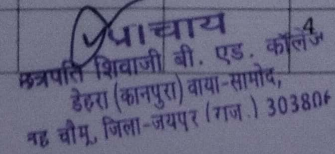 प्राचार्य
छत्रपति शिवाजी बी. एड. कॉलेज
डेहरा (कानपुरा) वाया-सामोद,
तह चौमू, जिला-जयपुर (राज.) 303806
4